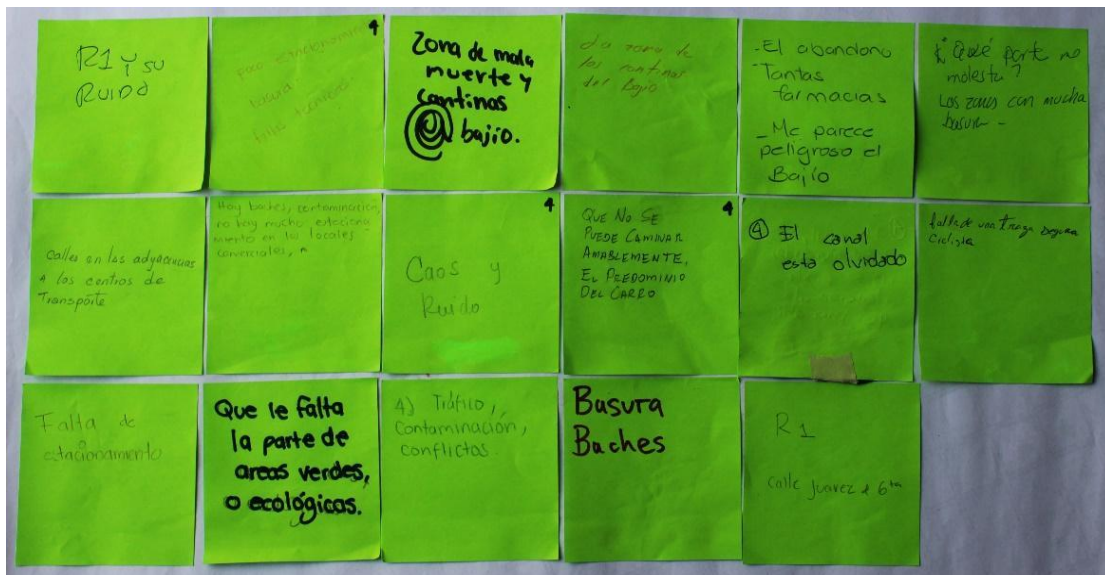 R1 y su
Ruido
4
poco estacionamiento
basura
Zona de mala
muerte y
cantinas
@ bajio.
La zona de
las cantinas
del Bajio.
-El abandono
-Tantas
farmacias
-Me parece
peligroso el
Bajío
¿Qué parte no
molesta?
Las zonas con mucha
basura-
calles en las adyacencias
a los centros de
Transporte
Hay baches, contaminación,
no hay mucho estaciona
miento en los locales
comerciales,
4
Caos y
Ruido
4
QUE NO SE
PUEDE CAMINAR
AMABLEMENTE,
EL PREDOMINIO
DEL CARRO
④ El canal
esta olvidado
falta de una segura
Ciclista
Falta de
estacionamiento
Que le falta
la parte de
areas verdes,
o ecológicas.
4) Tráfico,
Contaminación,
conflictos.
Basura
Baches
R1
Calle Juarez e 6ta